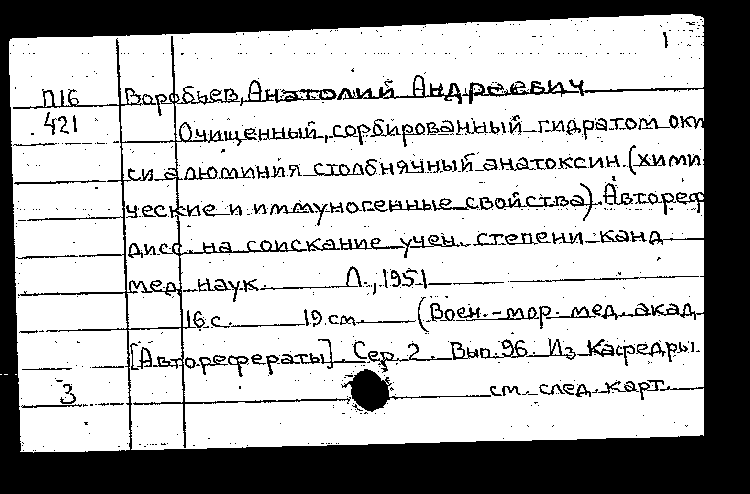 1
П16 Воробьев, Анатолий Андреевич
421 Очищенный, сорбированный гидратом оки
си алюминия столбнячный анатоксин. (хими
ческие и иммуногенные свойства). Автореф
дисс. на соискание учен. степени канд.
мед. наук. Л., 1951
16 с. 19 см. (Воен.-мор. мед. акад.
[Авторефераты]. Сер. 2. Вып. 96. Из Кафедры.
3 см. след. карт.